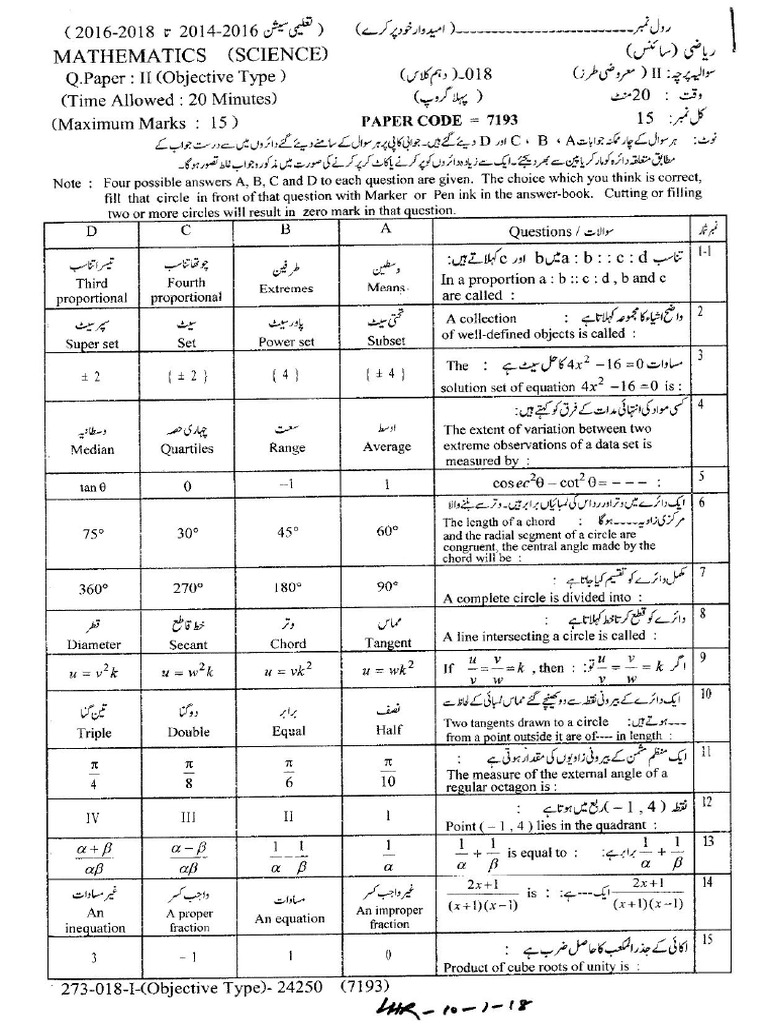 رول نمبر ــــــــــــــــ (امیدوار خود پُر کرے) (تعلیمی سیشن 2014-2016 تا 2016-2018)
ریاضی (سائنس) MATHEMATICS (SCIENCE)
سوالیہ پرچہ : II (معروضی طرز) 018-(دہم کلاس) Q.Paper : II (Objective Type)
وقت : 20 منٹ (پہلا گروپ) (Time Allowed : 20 Minutes)
کل نمبر : 15 PAPER CODE = 7193 (Maximum Marks : 15)
نوٹ: ہر سوال کے چار ممکنہ جوابات A ، B ، C اور D دیئے گئے ہیں۔ جوابی کاپی پر ہر سوال کے سامنے دیئے گئے دائروں میں سے درست جواب کے
مطابق متعلقہ دائرہ کو مارکر یا پین سے بھر دیجئے۔ ایک سے زیادہ دائروں کو پُر کرنے یا کاٹ کر پُر کرنے کی صورت میں مذکورہ جواب غلط تصور ہوگا۔
Note : Four possible answers A, B, C and D to each question are given. The choice which you think is correct,
fill that circle in front of that question with Marker or Pen ink in the answer-book. Cutting or filling
two or more circles will result in zero mark in that question.
D C B A Questions / سوالات نمبر شمار
تیسرا تناسب چوتھا تناسب طرفین وسطین تناسب a : b : : c : d میں b اور c کہلاتے ہیں: 1-1
Third Fourth Extremes Means In a proportion a : b :: c : d , b and c
proportional proportional are called :
سپر سیٹ سیٹ پاور سیٹ تحتی سیٹ A collection : واضح اشیاء کا مجموعہ کہلاتا ہے 2
Super set Set Power set Subset of well-defined objects is called :
± 2 { ± 2 } { 4 } { ± 4 } The : مساوات 4x² −16 = 0 کا حل سیٹ ہے 3
solution set of equation 4x² −16 = 0 is :
وسطانیہ چہاری حصہ سعت اوسط کسی مواد کی انتہائی مدات کے فرق کو کہتے ہیں: 4
Median Quartiles Range Average The extent of variation between two
extreme observations of a data set is
measured by :
tan θ 0 −1 1 cosec²θ − cot² θ = − − − : 5
75° 30° 45° 60° ایک دائرے میں وتر اور رداس کی لمبائیاں برابر ہیں۔ وتر سے بننے والا 6
The length of a chord : مرکزی زاویہ ---- ہوگا
and the radial segment of a circle are
congruent, the central angle made by the
chord will be :
360° 270° 180° 90° مکمل دائرے کو تقسیم کیا جاتا ہے : 7
A complete circle is divided into :
قطر خط قاطع وتر مماس دائرے کو قطع کرتا خط کہلاتا ہے : 8
Diameter Secant Chord Tangent A line intersecting a circle is called :
u = v²k u = w²k u = vk² u = wk² If u/v = v/w = k , then : اگر u/v = v/w = k تو : 9
تین گنا دوگنا برابر نصف ایک دائرے کے بیرونی نقطہ سے دو کھینچے گئے مماس لمبائی کے لحاظ سے 10
Triple Double Equal Half Two tangents drawn to a circle : --- ہوتے ہیں
from a point outside it are of---- in length :
π/4 π/8 π/6 π/10 ایک منظم مثمن کے بیرونی زاویوں کی مقدار ہوتی ہے : 11
The measure of the external angle of a
regular octagon is :
IV III II I نقطہ (−1 , 4) ربع میں ہوتا ہے : 12
Point (−1 , 4) lies in the quadrant :
α + β/αβ α − β/αβ 1/α − 1/β 1/α 1/α + 1/β is equal to : برابر ہے: 1/α + 1/β 13
غیر مساوات واجب کسر مساوات غیر واجب کسر 2x+1/(x+1)(x−1) is : ایک --- ہے: 2x+1/(x+1)(x−1) 14
An A proper An equation An improper
inequation fraction fraction
3 − 1 1 0 اکائی کے جذر المکعب کا حاصل ضرب ہے : 15
Product of cube roots of unity is :
273-018-I-(Objective Type)- 24250 (7193)
LHR-10-1-18